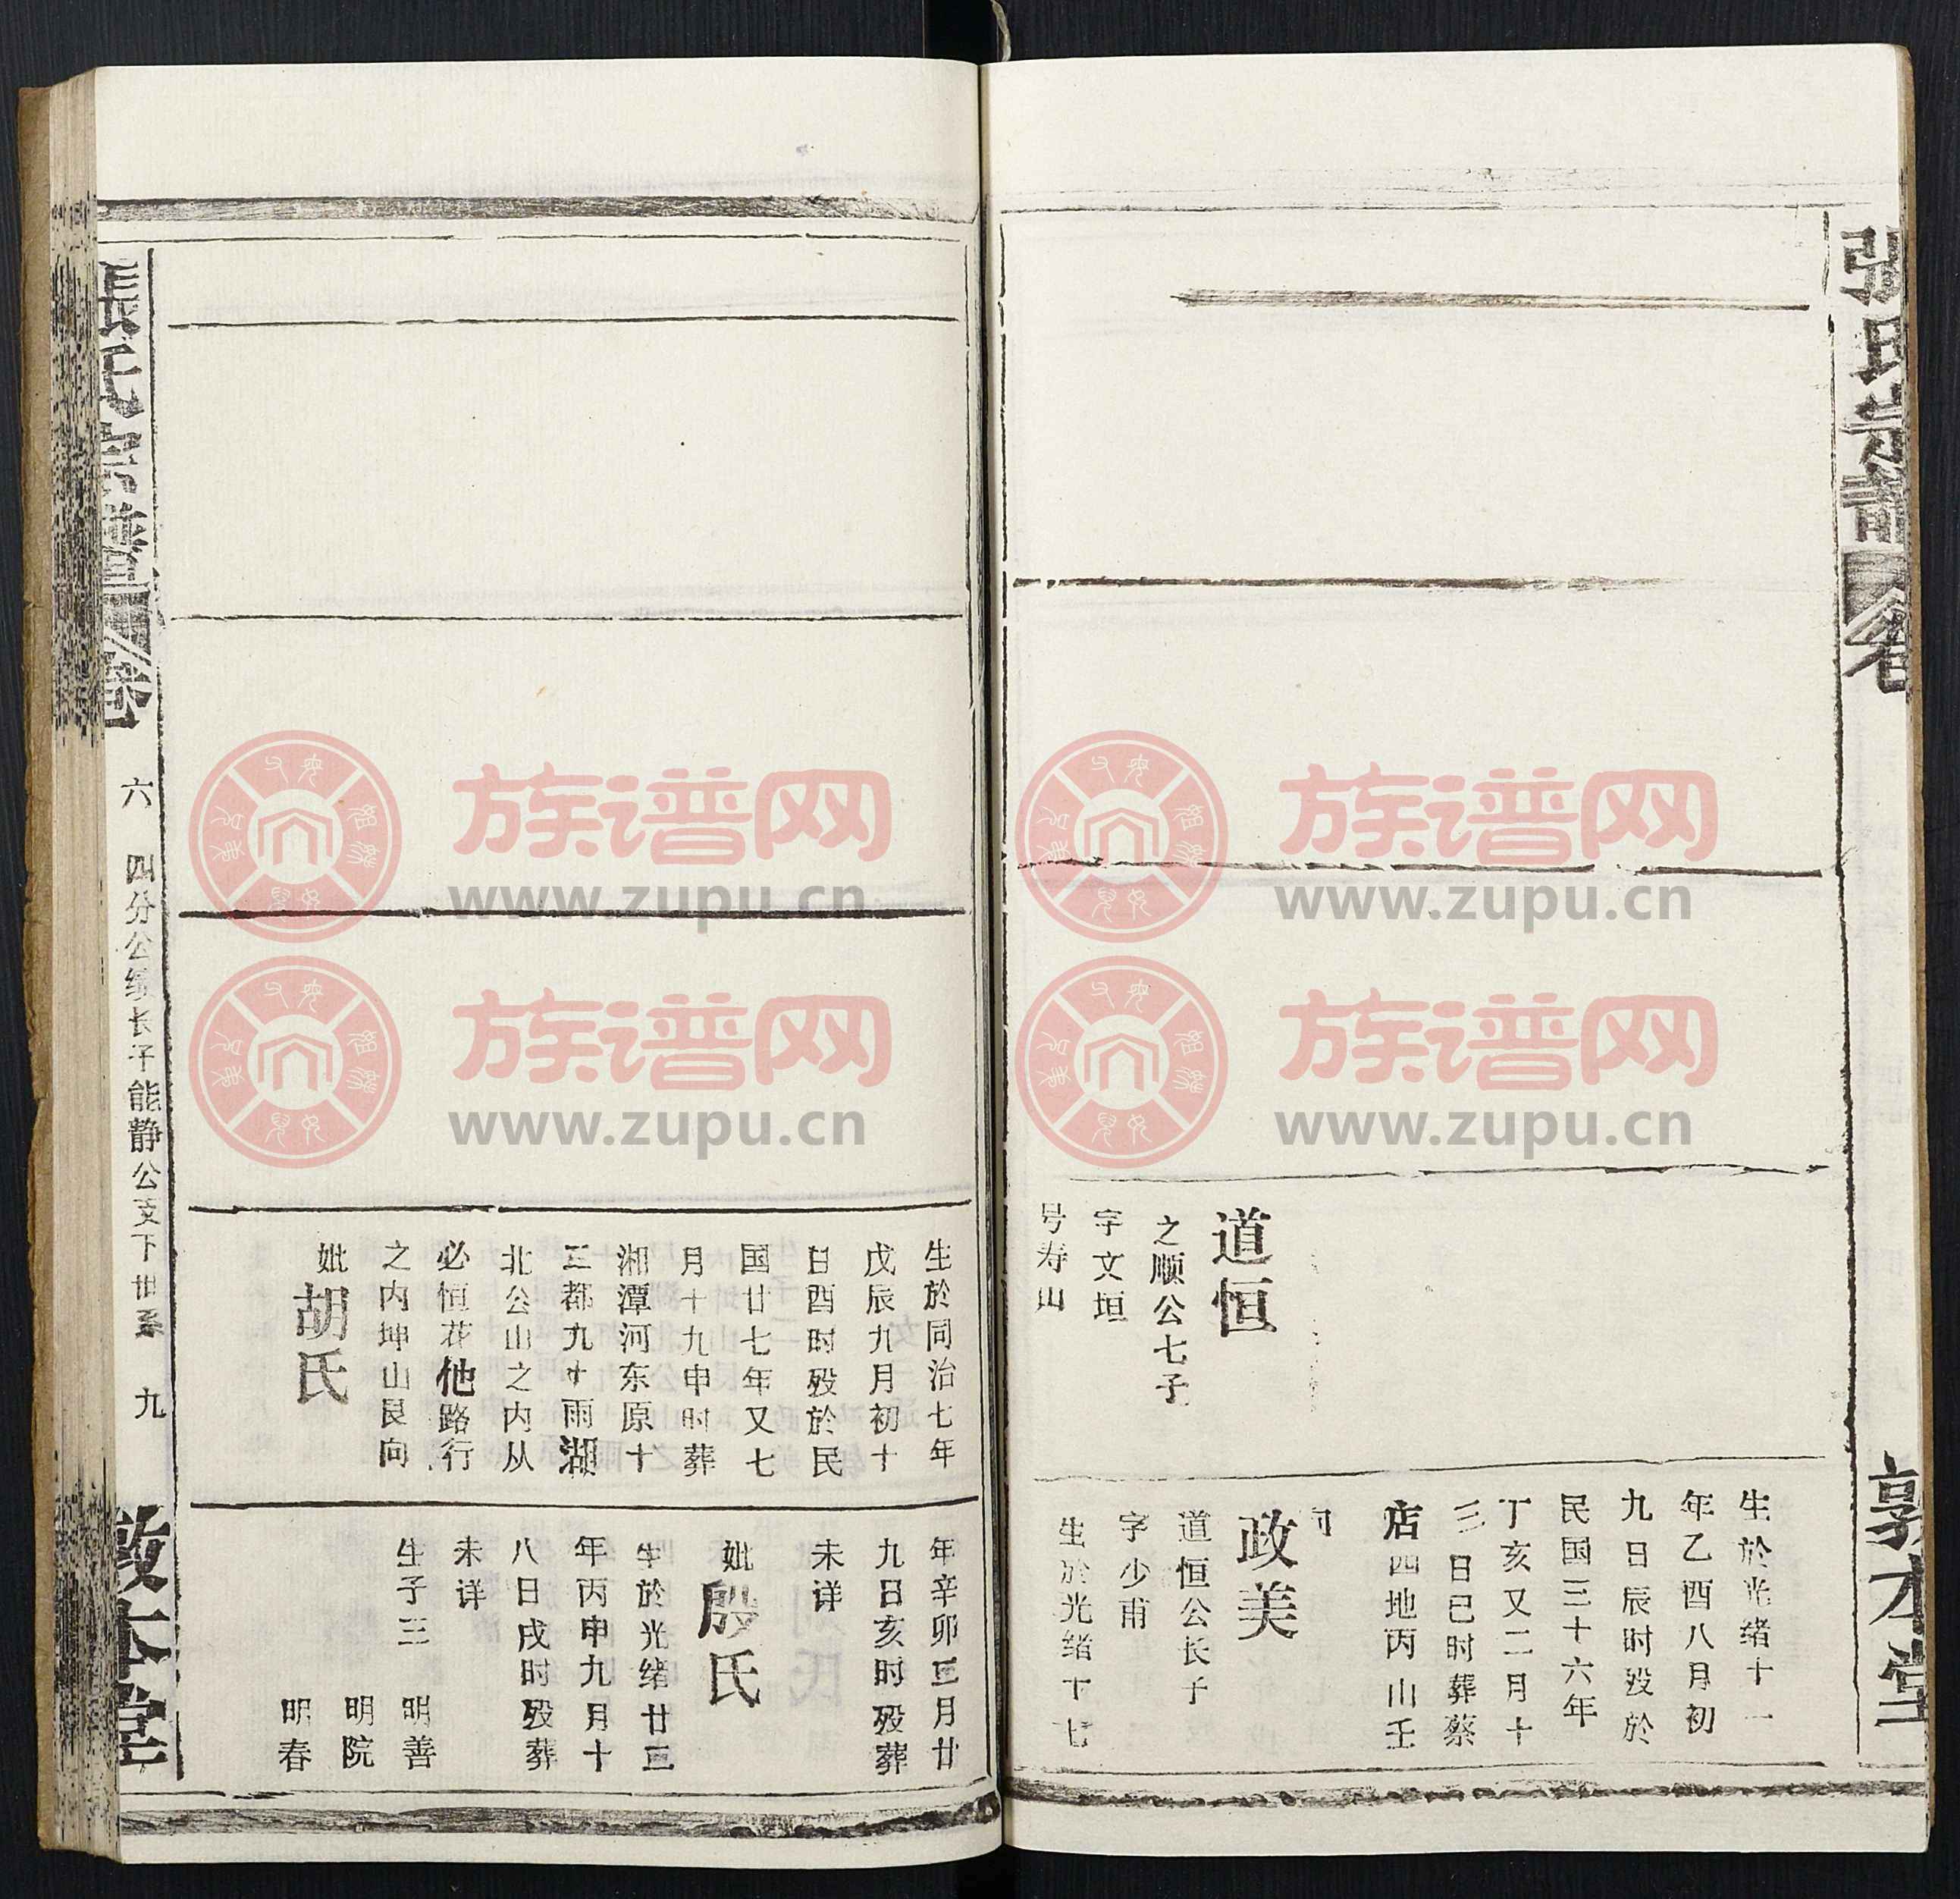 张氏宗譜
卷
敦本堂
道恒
之顺公七子
字文垣
号寿山
生於光绪十一
年乙酉八月初
九日辰时殁於
民国三十六年
丁亥又二月十
三日巳时葬蔡
店四地丙山壬
向
政美
道恒公长子
字少甫
生於光绪十七
生於同治七年
戊辰九月初十
日酉时殁於民
国廿七年又七
月十九申时葬
湘潭河东原十
三都九甲雨湖
北公山之内从
必恒花他路行
之内坤山艮向
妣胡氏
年辛卯三月廿
九日亥时殁葬
未详
妣殷氏
生於光绪廿三
年丙申九月十
八日戌时殁葬
未详
生子三 明善
明院
明春
張氏宗譜
卷
六
四分公 长子能静公支下世系
九
敦本堂
族谱网
www.zupu.cn
族谱网
www.zupu.cn
族谱网
www.zupu.cn
族谱网
www.zupu.cn